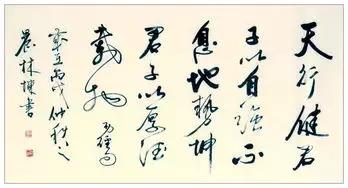 天行健君
子以自强不
息地势坤
君子以厚德
载物
岁在丙戌仲秋
晨林博书